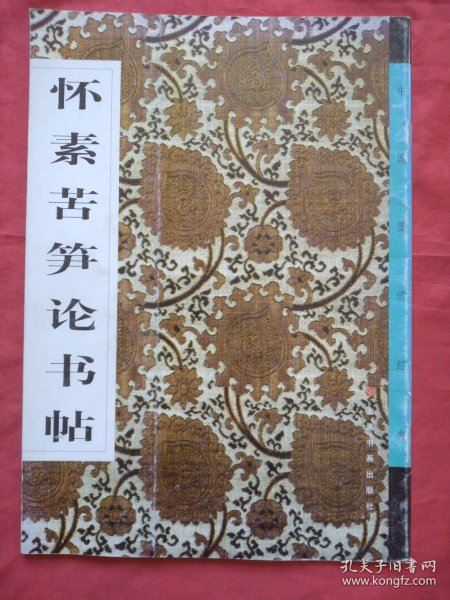 怀素苦笋论书帖
中国墨迹经典
书画出版社
孔夫子旧书网
www.kongfz.com